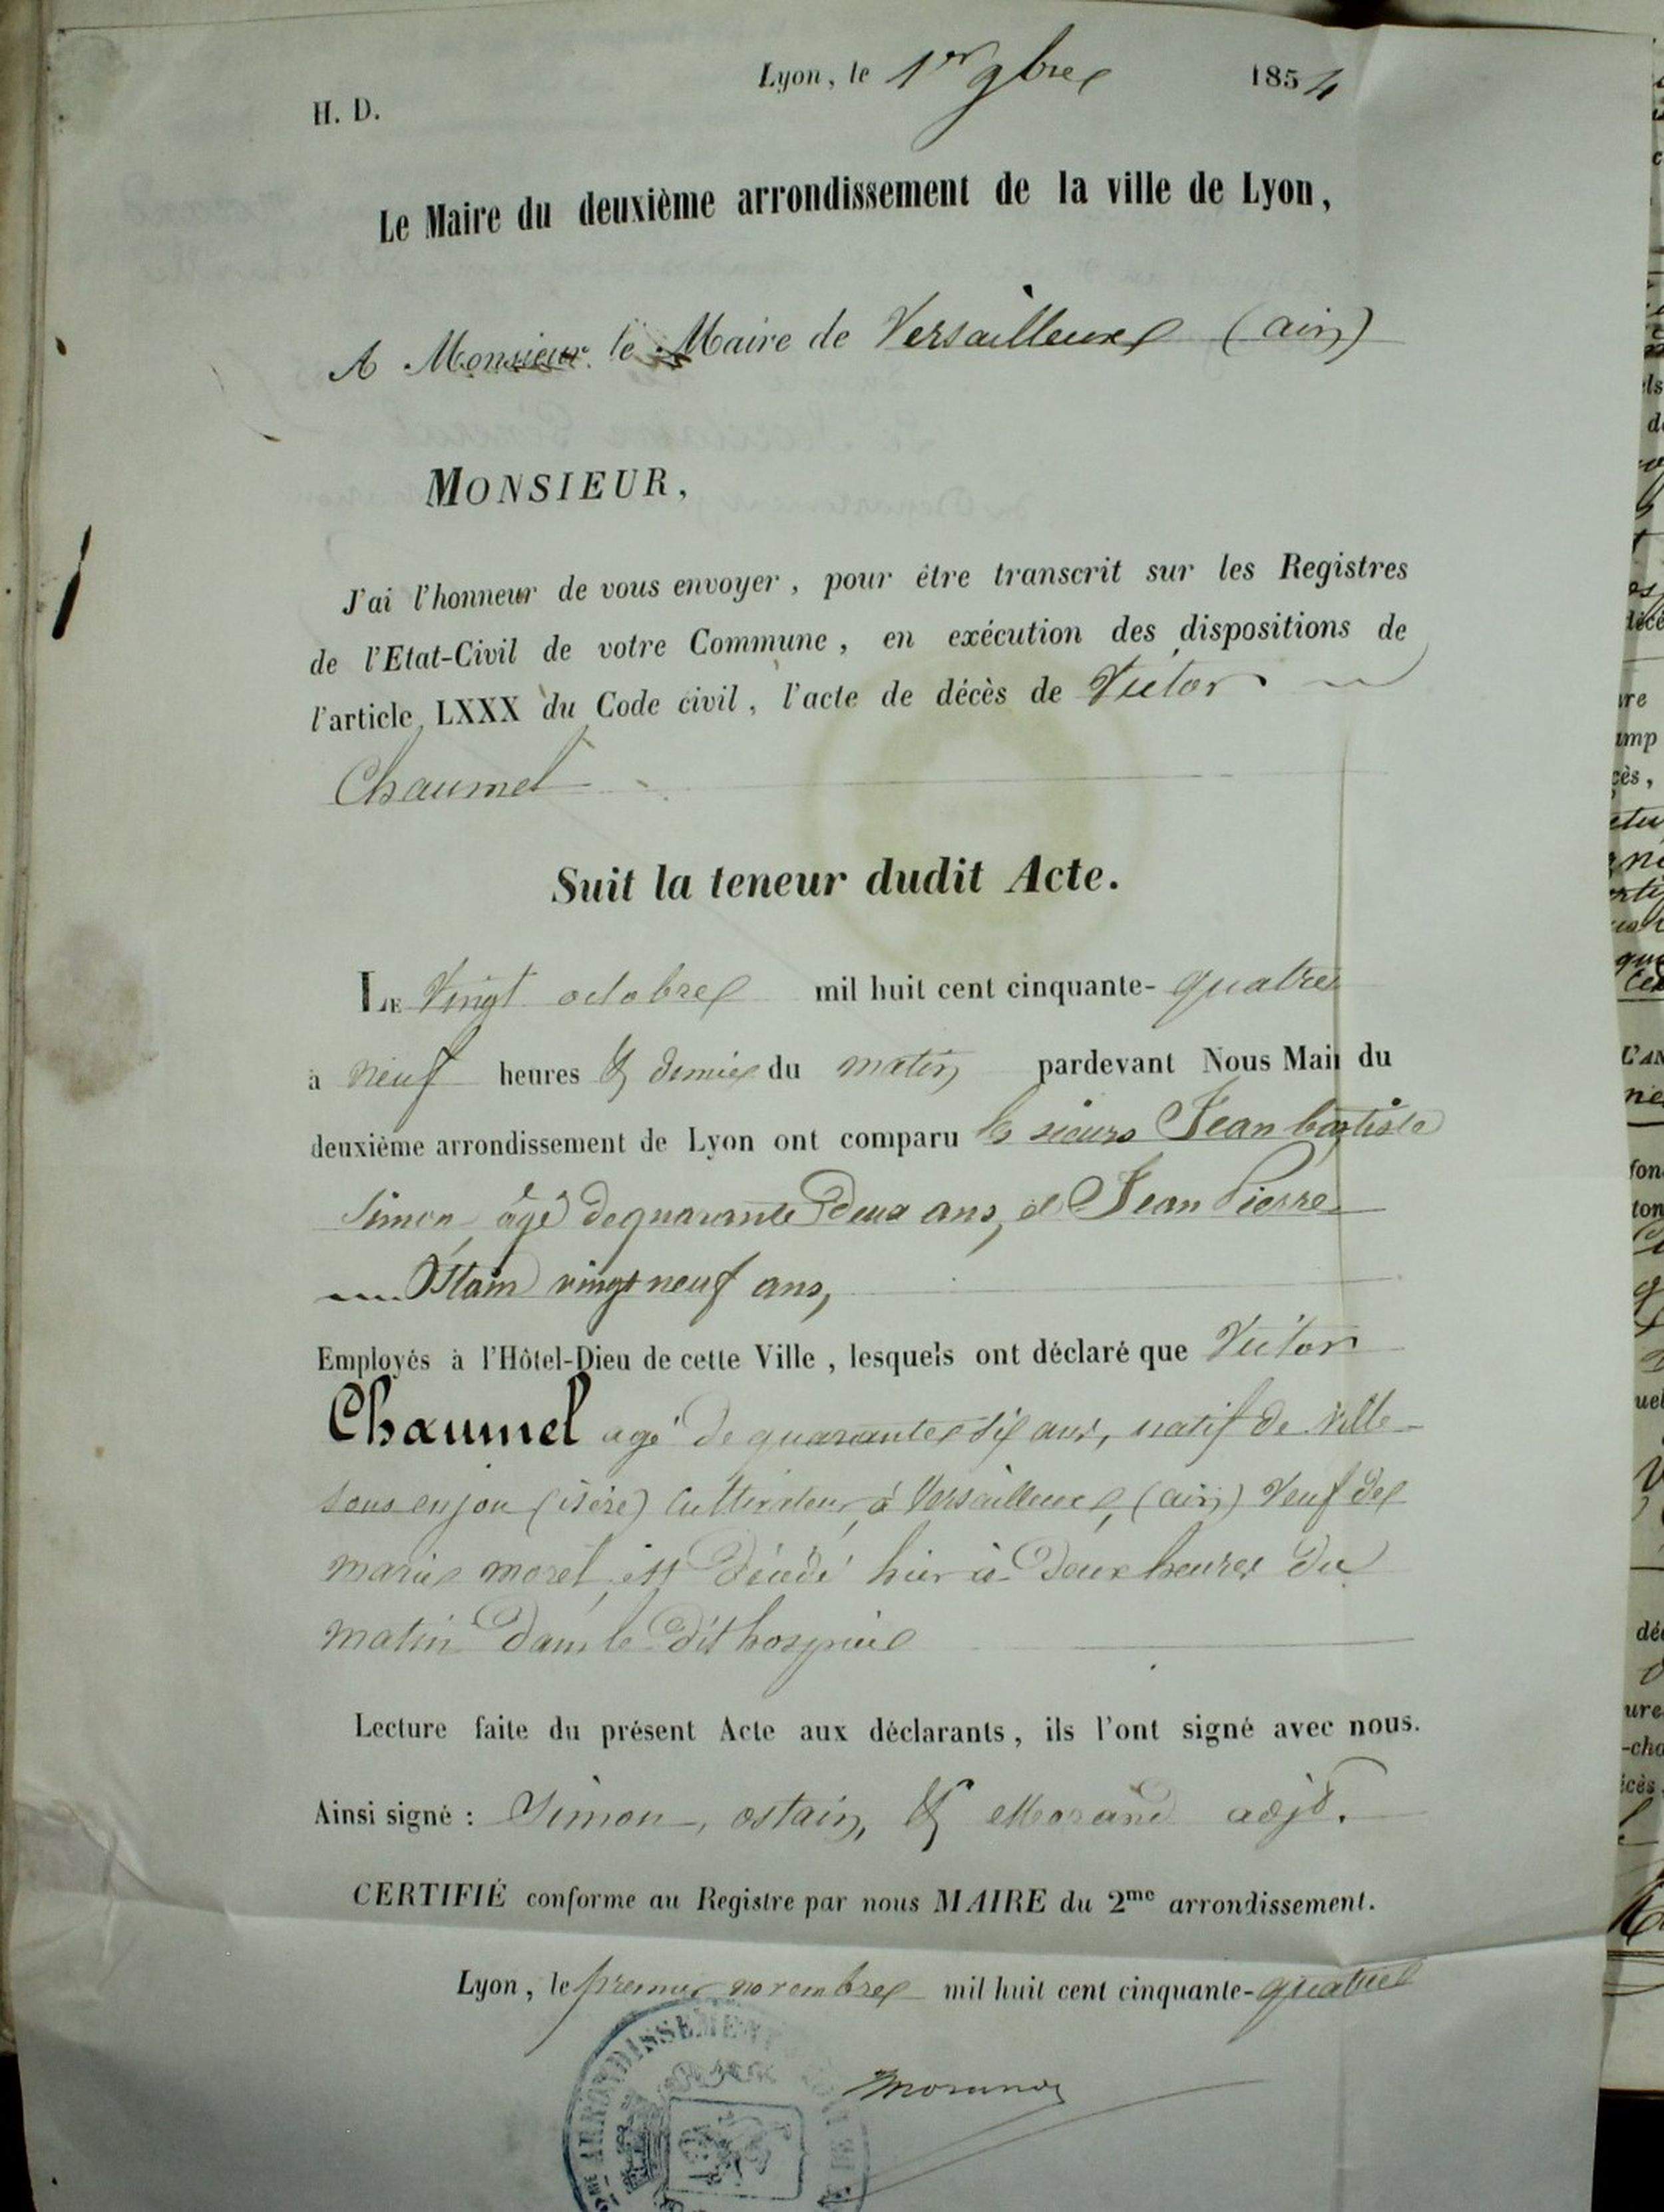 Lyon, le 1er 9bre 1854
H. D.
Le Maire du deuxième arrondissement de la ville de Lyon,
A Monsieur le Maire de Versailleux (ain)
MONSIEUR,
J'ai l'honneur de vous envoyer, pour être transcrit sur les Registres
de l'Etat-Civil de votre Commune, en exécution des dispositions de
l'article LXXX du Code civil, l'acte de décès de Victor
Chaumel
Suit la teneur dudit Acte.
LE Vingt octobre mil huit cent cinquante-quatre
à neuf heures & demie du matin pardevant Nous Mair du
deuxième arrondissement de Lyon ont comparu les sieurs Jean baptiste
Simon, âgé de quarante deux ans, et Jean Pierre
Ostain vingt neuf ans,
Employés à l'Hôtel-Dieu de cette Ville, lesquels ont déclaré que Victor
Chaumel agé de quarante six ans, natif de ville
sous enjou (isère) Cultivateur à Versailleux, (ain) Veuf de
marie morel, est décédé hier à deux heures du
matin dans le dit hospice
Lecture faite du présent Acte aux déclarants, ils l'ont signé avec nous.
Ainsi signé : Simon, ostain, & Morand adjt.
CERTIFIÉ conforme au Registre par nous MAIRE du 2me arrondissement.
Lyon, le premier novembre mil huit cent cinquante-quatre
Morand
ARRONDISSEMENT